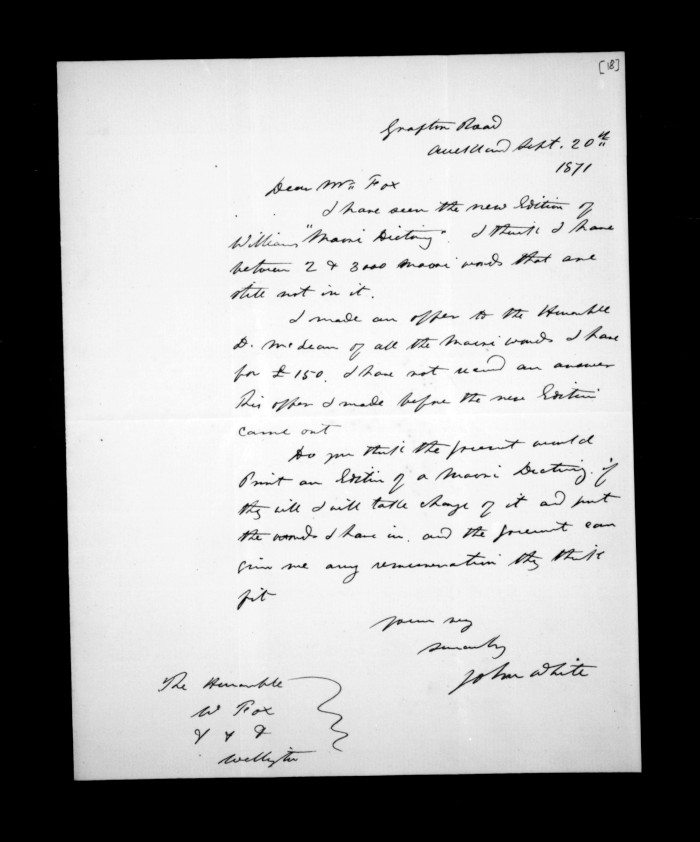 [18]
Grafton Road
Auckland Sept. 20th
1871
Dear Mr Fox
I have seen the new Edition of
Williams "Maori Dictiony". I think I have
between 2 & 3000 Maori words that are
still not in it.
I made an offer to the Honorable
D. McLean of all the Maori words I have
for £150. I have not recived an answer
This offer I made before the new Edition
came out
Do you think the Goverment would
Print an Edition of a Maori Dictiony. if
they will I will take charge of it and put
the words I have in. and the Goverment can
give me any remuneration they think
fit
yours very
sincerely
John White
The Honorable
W Fox
& & &
Wellington